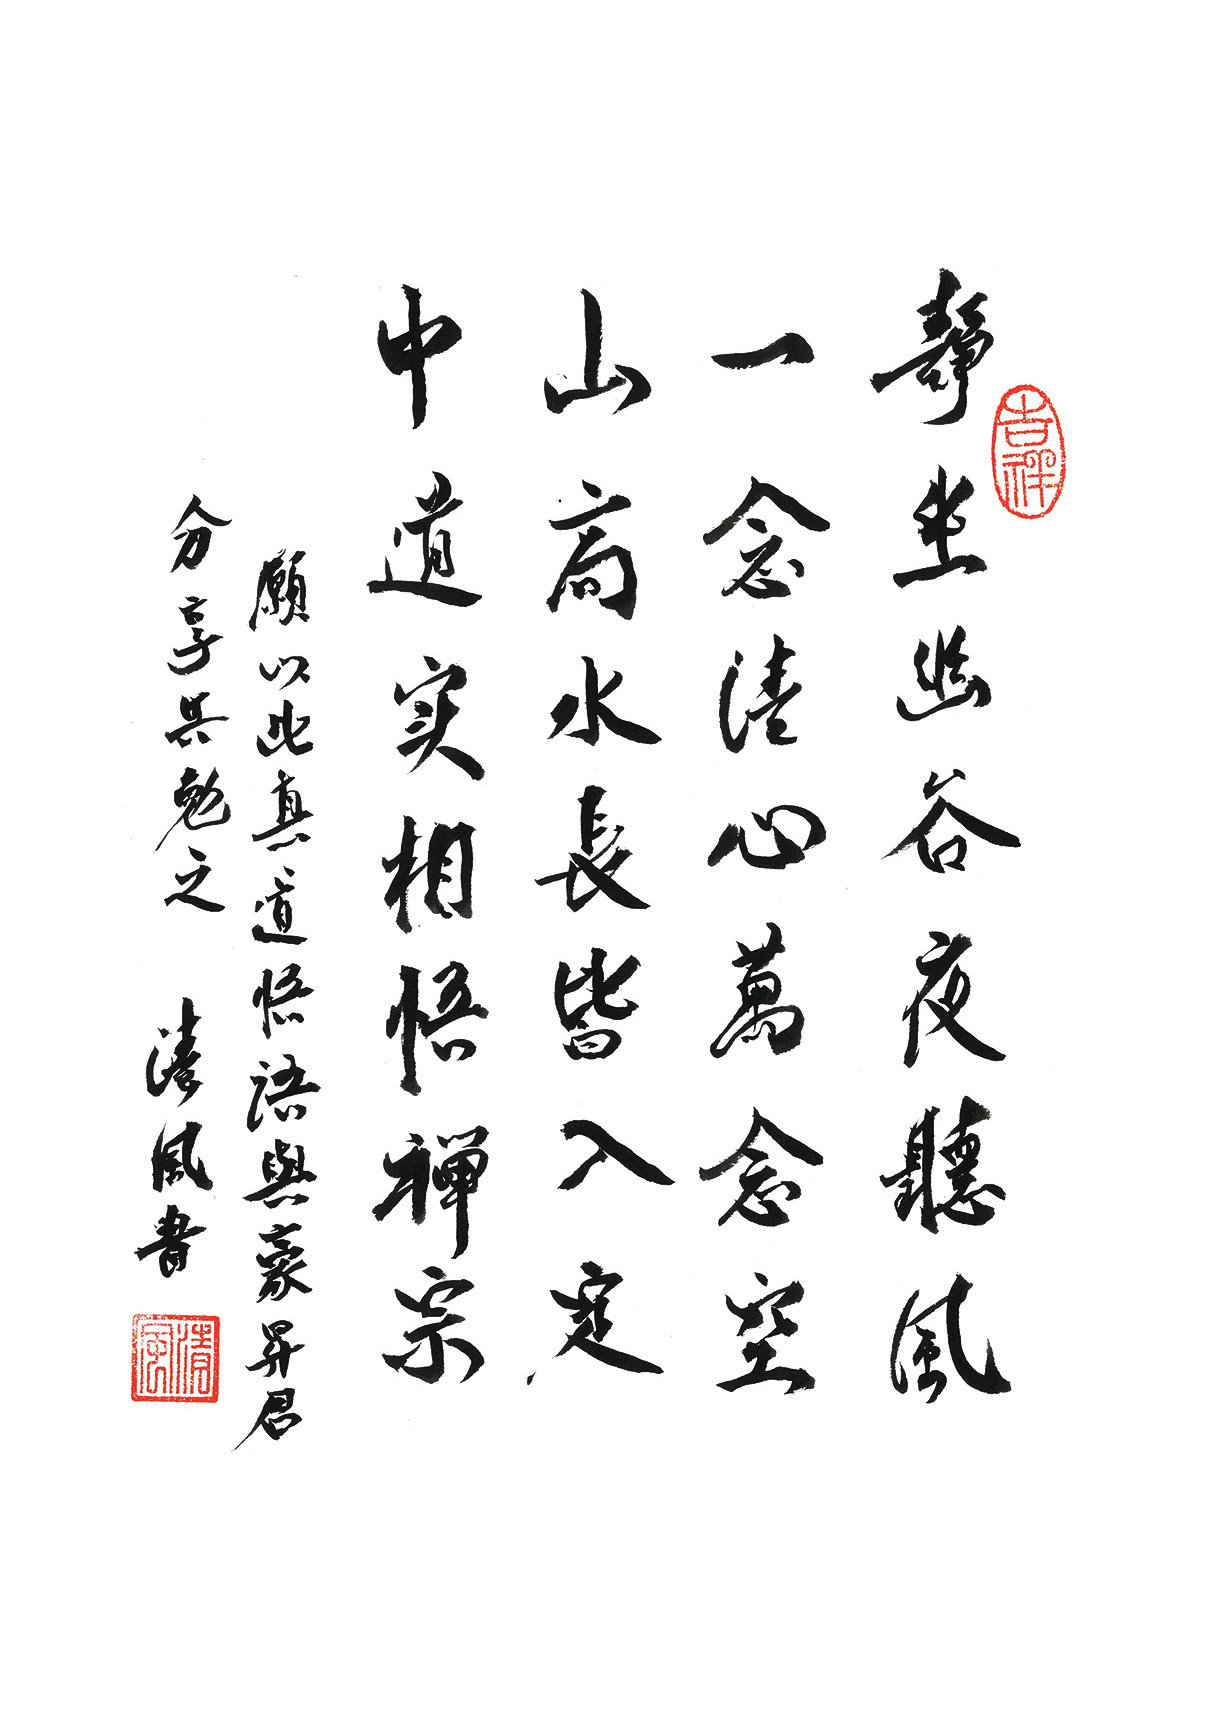 靜坐幽谷夜聽風
一念清心萬念空
山高水長皆入定
中道实相悟禅宗
願以此真道悟語與豪昇君
分享共勉之 清風書
吉祥
清風